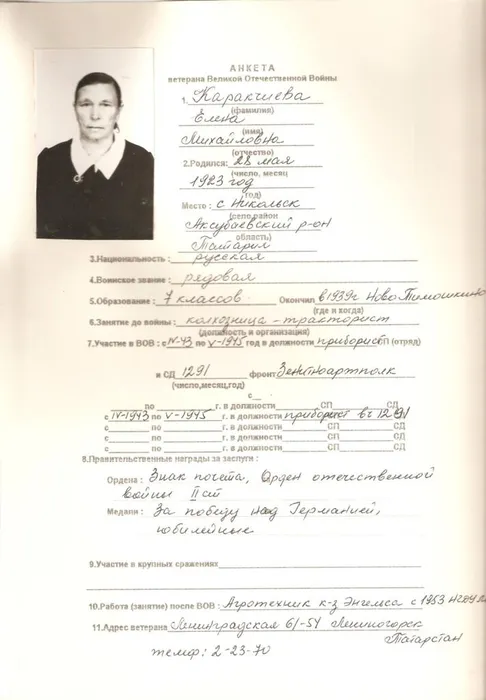 АНКЕТА
ветерана Великой Отечественной Войны
1. Каракчиева
(фамилия)
Елена
(имя)
Михайловна
(отчество)
2.Родился: 28 мая
(число, месяц
1923 год
год)
Место : с. Никольск
(село,район
Аксубаевский р-он
область)
Татарии
3.Национальность : русская
4.Воинское звание : рядовая
5.Образование : 7 классов Окончил в 1939г Ново Тимошкино
(где и когда)
6.Занятие до войны : колхозница - тракторист
(должность и организация)
7.Участие в ВОВ : с IV-43 по V-1945 год в должности приборист СП (отряд)
и СД 1291 фронт Зенитноартполк
(число,месяц,год)
с
по г. в должности СП СД
с IV-1943 по V-1945 г. в должности приборист в/ч 1291
с по г. в должности СП СД
с по г. в должности СП СД
с по г. в должности СП СД
8.Правительственные награды за заслуги :
Ордена : Знак почёта, Орден отечественной
войны II ст
Медали : За победу над Германией,
юбилейные
9.Участие в крупных сражениях
10.Работа (занятие) после ВОВ : Агротехник к-з Энгельса с 1953
11.Адрес ветерана Ленинградская 61-54 Лениногорск
Татарстан
телеф: 2-23-70